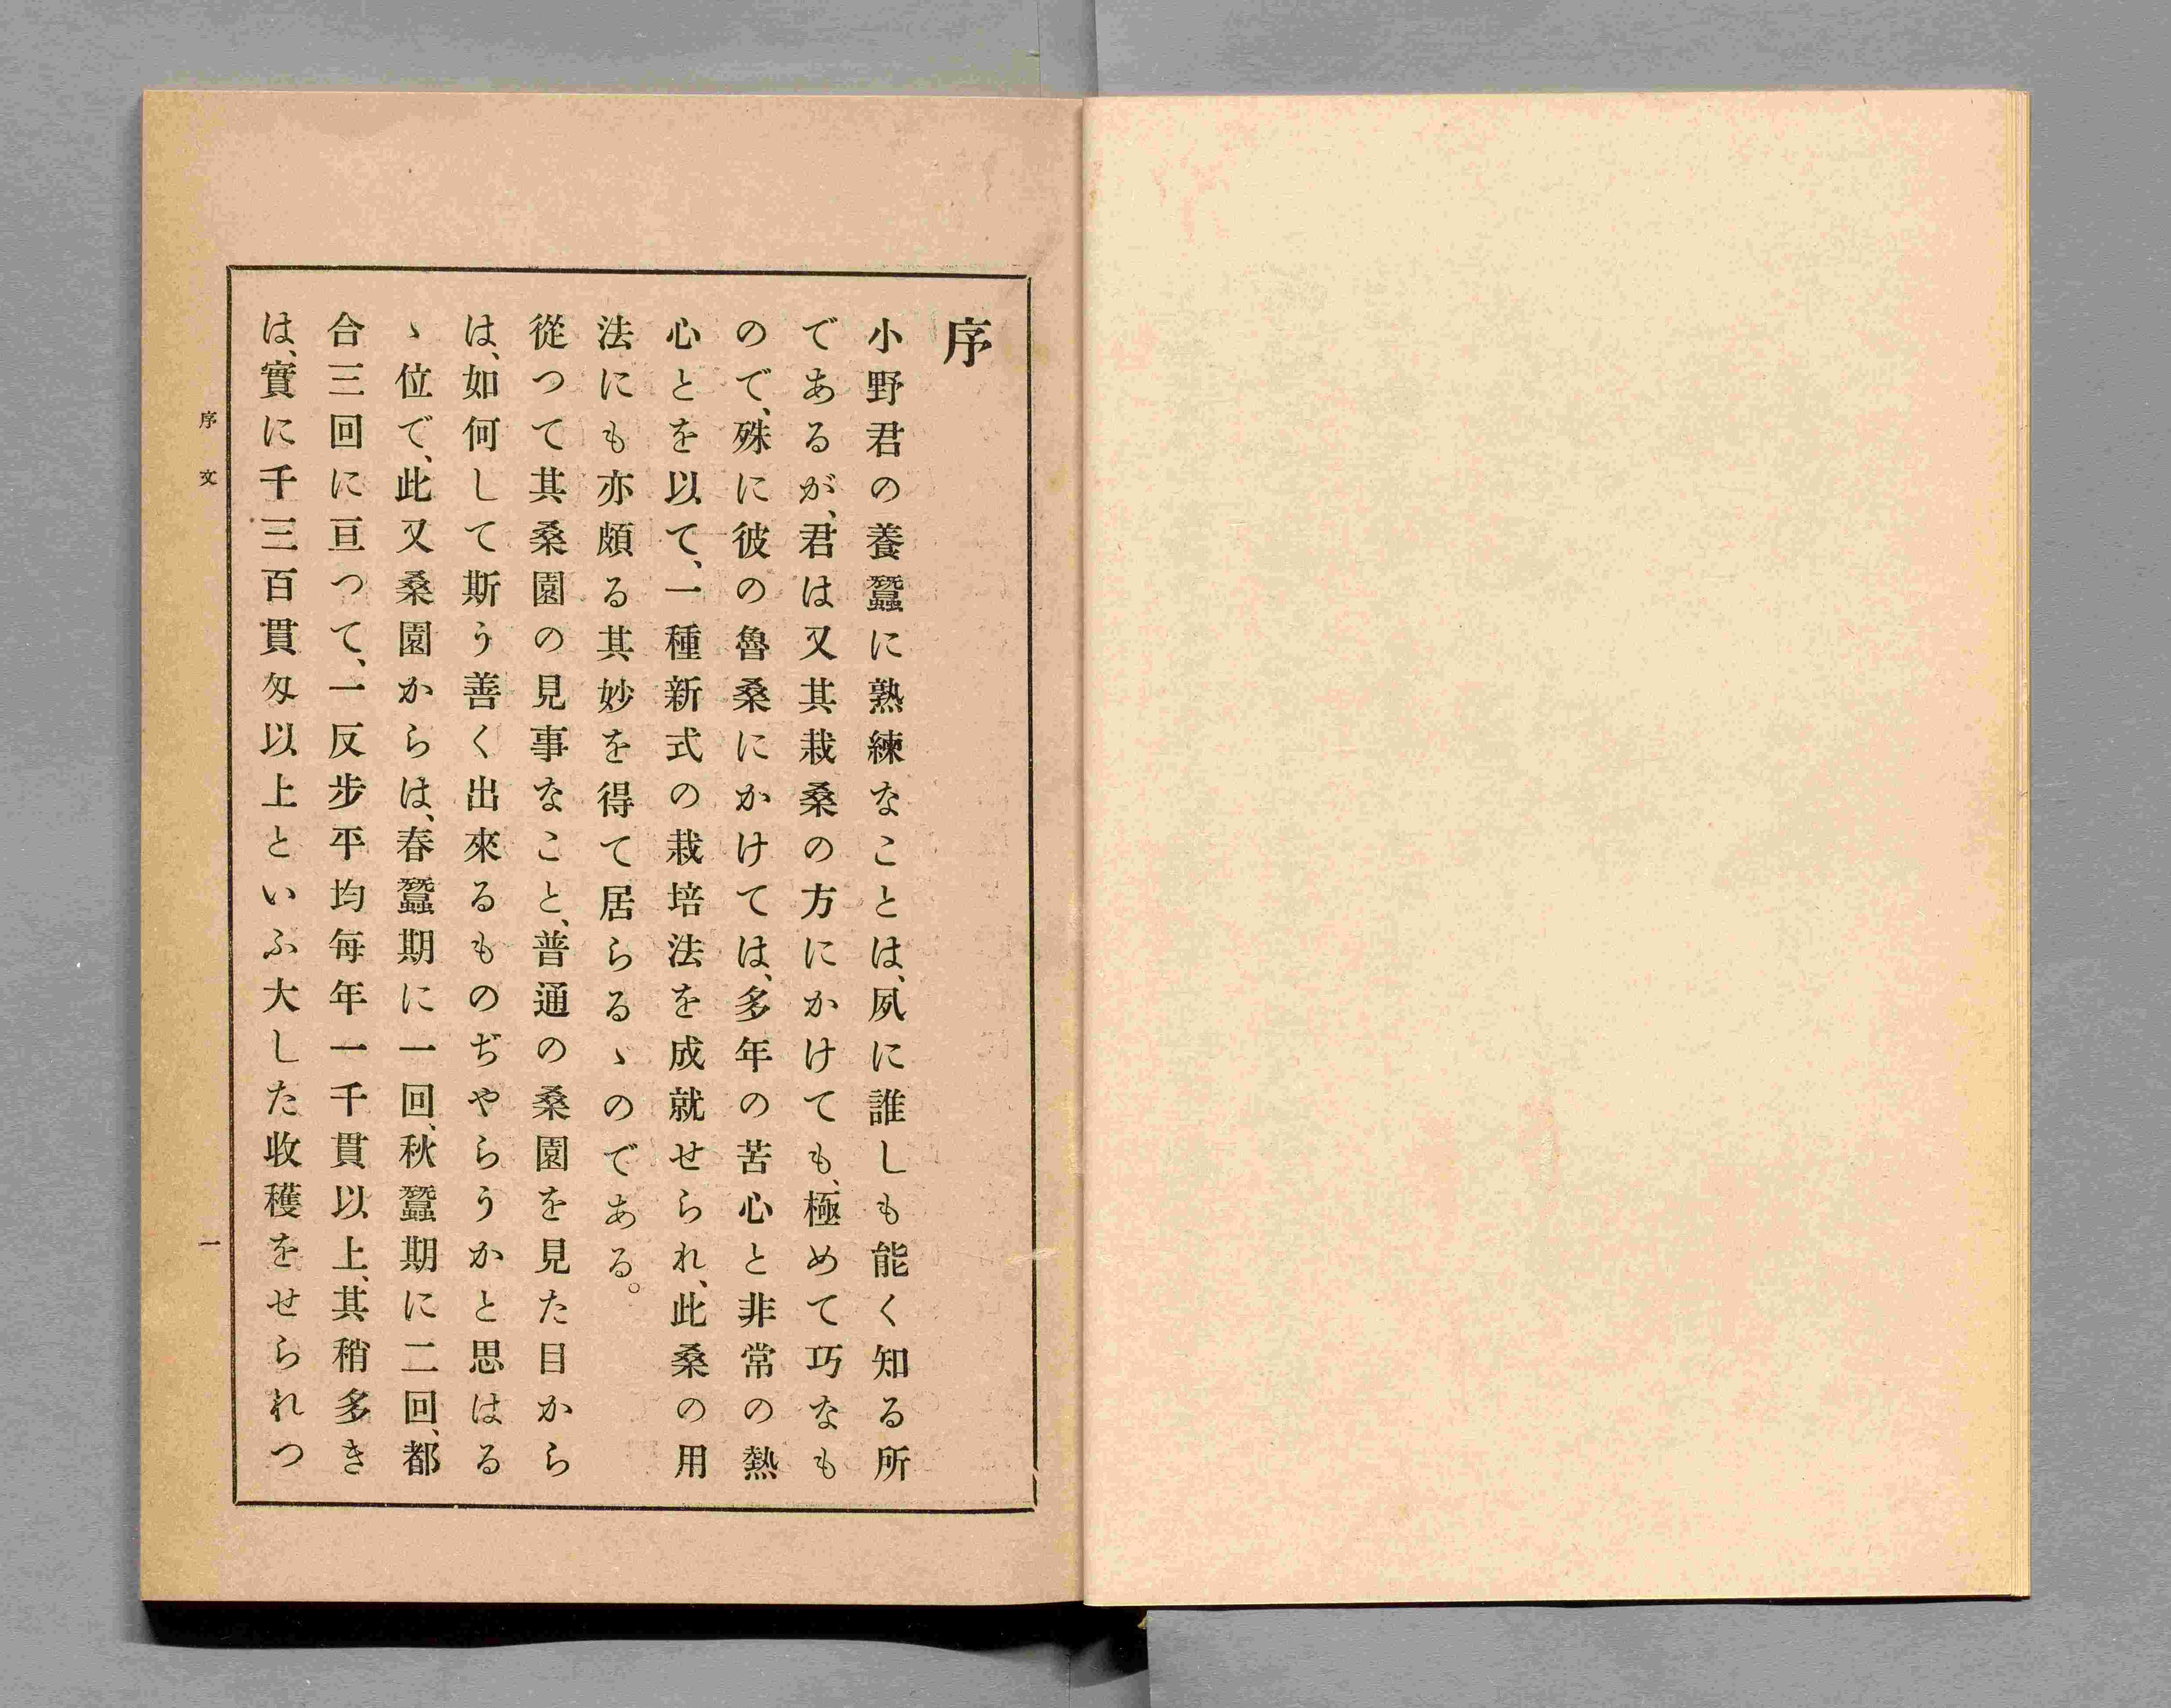 序
小野君の養蠶に熟練なことは、夙に誰しも能く知る所
であるが、君は又其栽桑の方にかけても、極めて巧なも
ので、殊に彼の魯桑にかけては、多年の苦心と非常の熱
心とを以て、一種新式の栽培法を成就せられ、此桑の用
法にも亦頗る其妙を得て居らるゝのである。
從つて其桑園の見事なこと、普通の桑園を見た目から
は、如何して斯う善く出來るものぢやらうかと思はる
ゝ位で、此又桑園からは、春蠶期に一回、秋蠶期に二回、都
合三回に亘つて、一反步平均每年一千貫以上、其稍多き
は、實に千三百貫匁以上といふ大した收穫をせられつ
序文
一